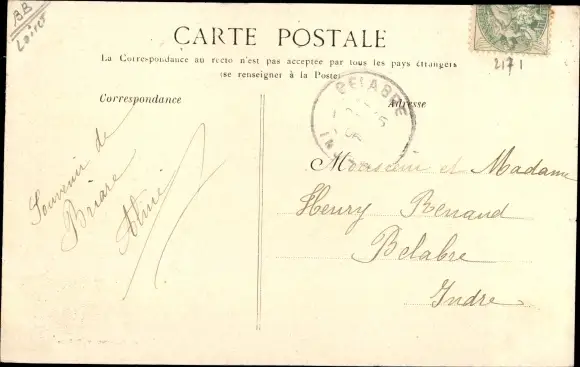 BB
Loiret
CARTE POSTALE
La Correspondance au recto n'est pas acceptée par tous les pays étrangers
(se renseigner à la Poste)
Correspondance
Adresse
BELABRE
INDRE
2171
Souvenir de
Briare
Aimé
Monsieur et Madame
Henry Renaud
Belabre
Indre